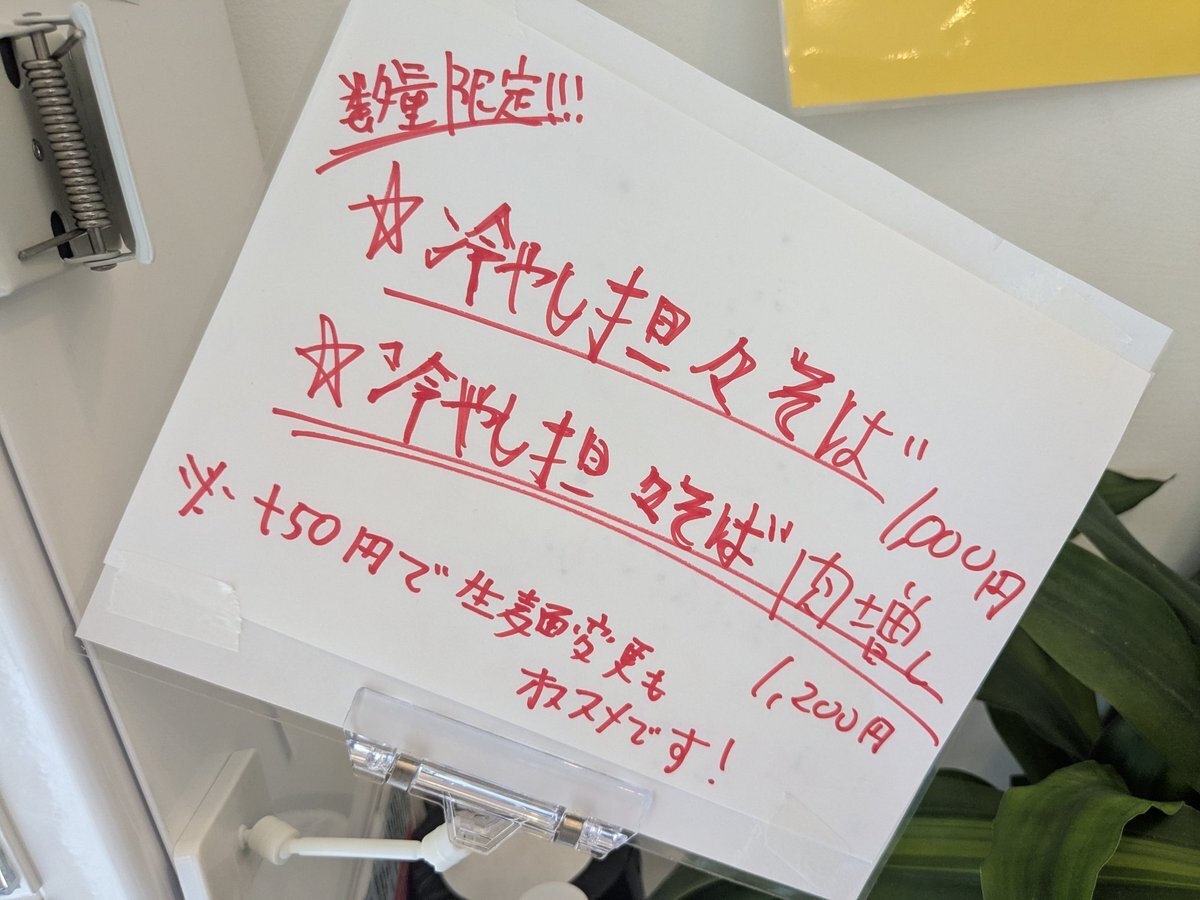 数量限定!!!
☆冷やし担々そば
1,000円
☆冷やし担々そば肉増し
1,200円
※+50円で生麺変更も
オススメです!